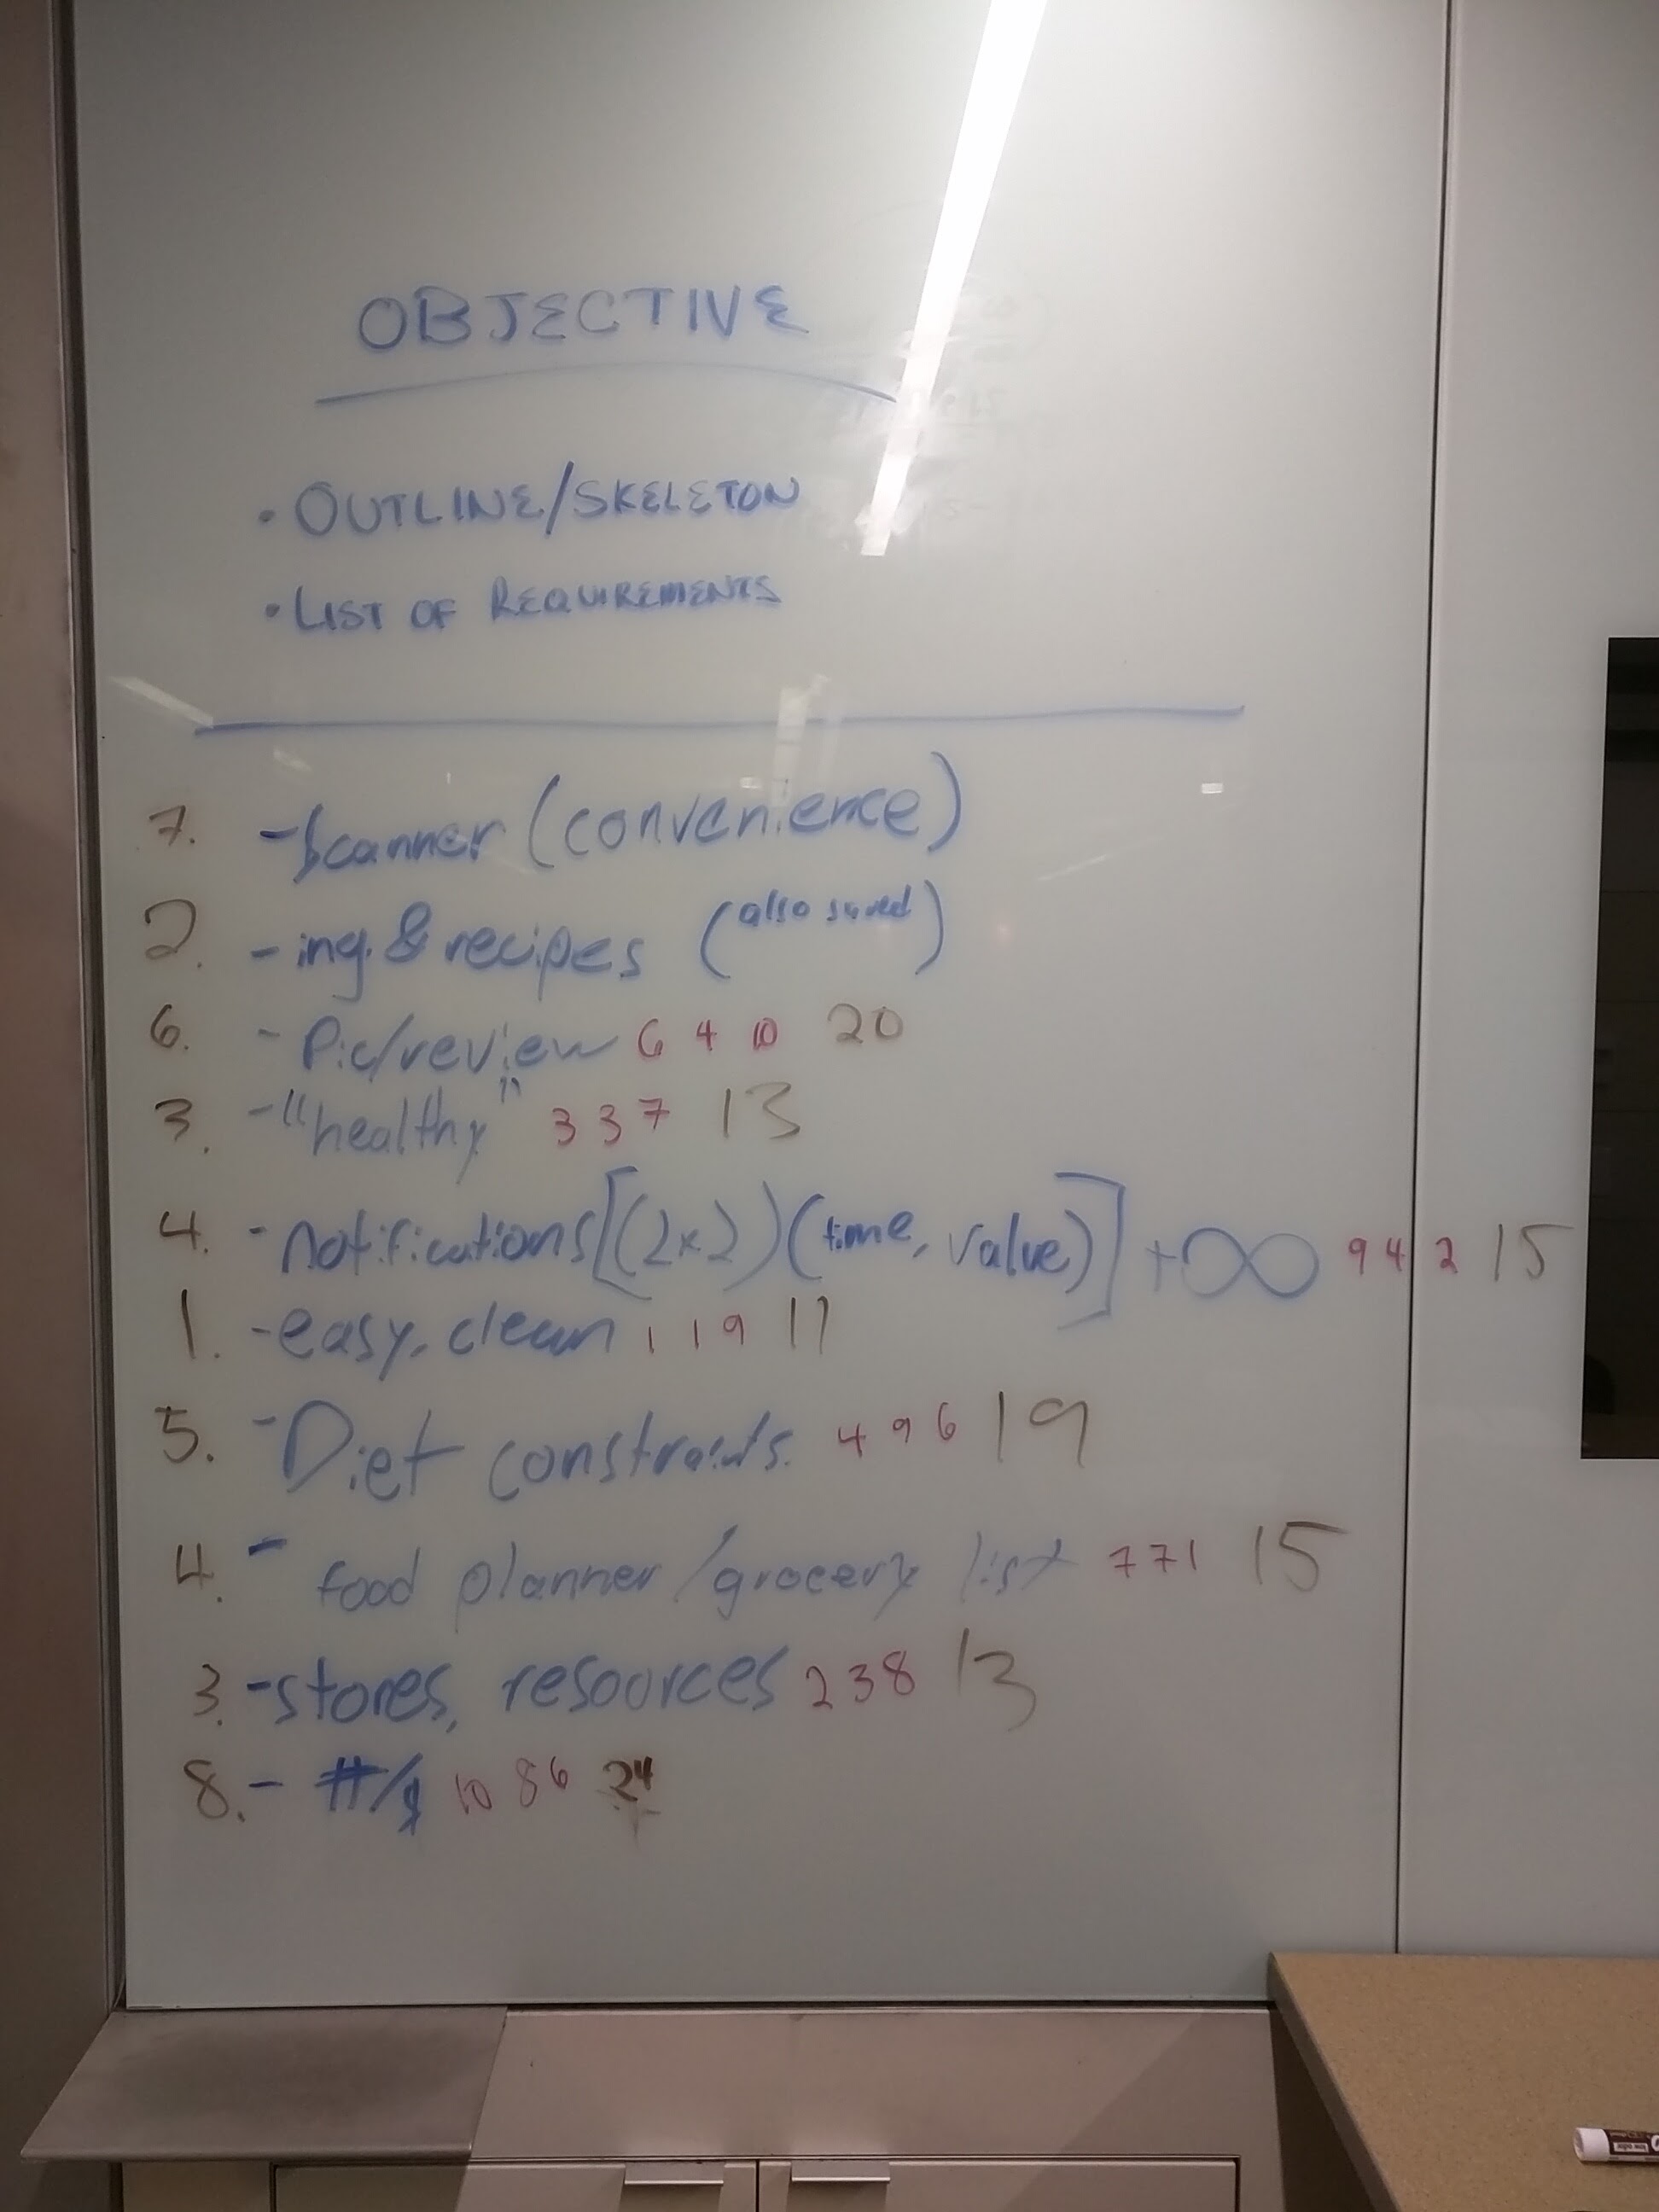 OBJECTIVE
• OUTLINE/SKELETON
• LIST OF REQUIREMENTS
7. - Scanner (convenience)
2. - ing. & recipes (also saved)
6. - Pic/review 6 4 10 20
3. - "healthy" 3 3 7 13
4. - notifications [(2x2)(time, value)] +∞ 9 4 2 15
1. - easy, clean 1 1 9 11
5. - Diet constraints. 4 9 6 19
4. - food planner/grocery list 7 7 1 15
3. - stores, resources 2 3 8 13
8. - #/$ 10 8 6 24